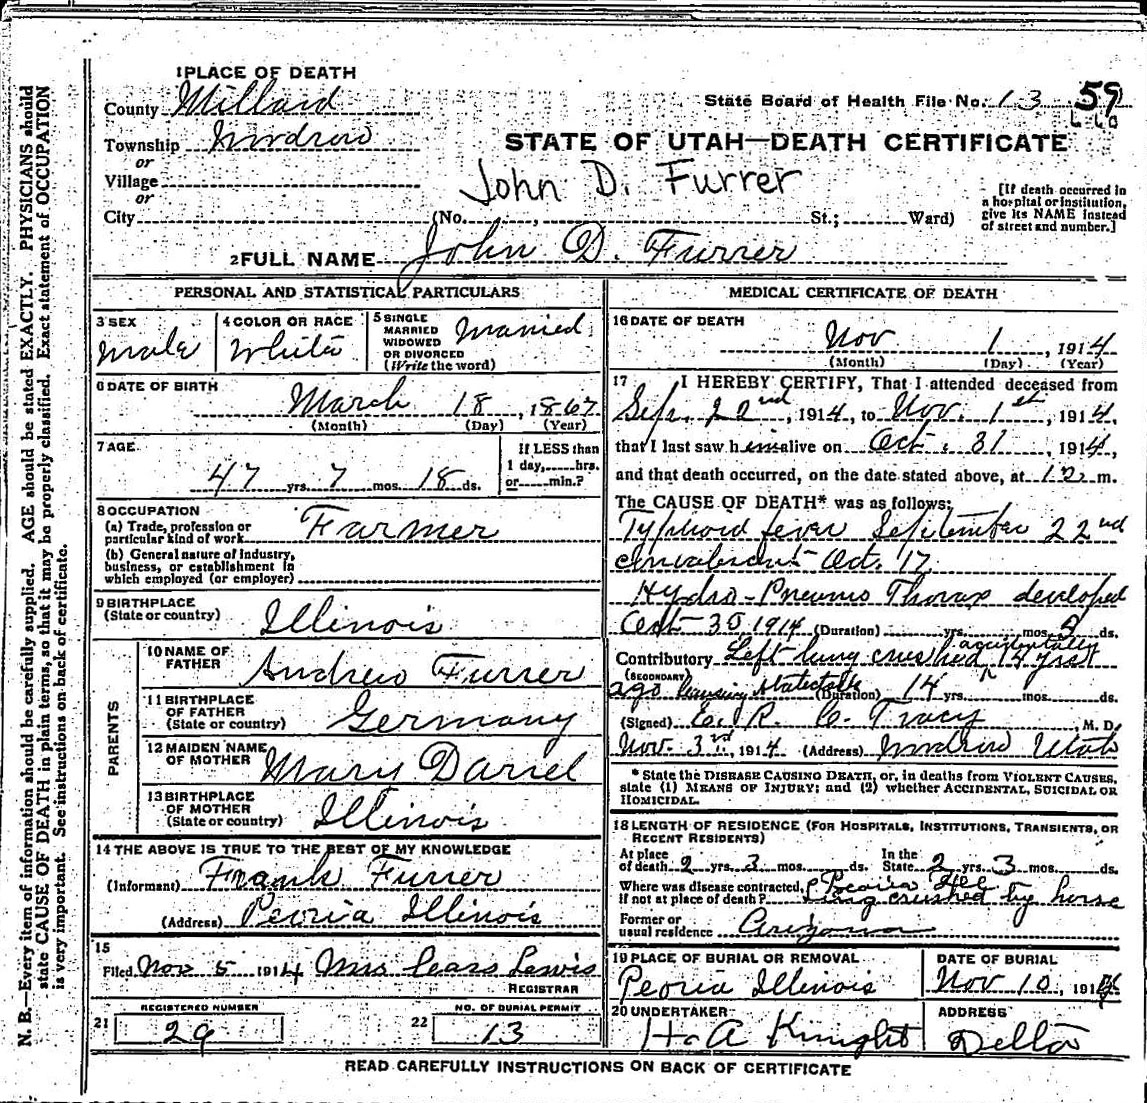 1 PLACE OF DEATH
County Millard
State Board of Health File No. 13 59
Township Woodrow
STATE OF UTAH—DEATH CERTIFICATE
or
Village
John D. Furrer
or
City (No. , St.; Ward)
[If death occurred in
a hospital or institution,
give its NAME instead
of street and number.]
2 FULL NAME John D. Furrer
PERSONAL AND STATISTICAL PARTICULARS
3 SEX
Male
4 COLOR OR RACE
White
5 SINGLE
MARRIED
WIDOWED
OR DIVORCED
(Write the word)
Married
6 DATE OF BIRTH
March 18, 1867
(Month) (Day) (Year)
7 AGE
47 yrs. 7 mos. 18 ds.
If LESS than
1 day, hrs.
or min.?
8 OCCUPATION
(a) Trade, profession or
particular kind of work Farmer
(b) General nature of industry,
business, or establishment in
which employed (or employer)
9 BIRTHPLACE
(State or country) Illinois
PARENTS
10 NAME OF
FATHER Andrew Furrer
11 BIRTHPLACE
OF FATHER
(State or country) Germany
12 MAIDEN NAME
OF MOTHER Mary Darrel
13 BIRTHPLACE
OF MOTHER
(State or country) Illinois
14 THE ABOVE IS TRUE TO THE BEST OF MY KNOWLEDGE
(Informant) Frank Furrer
(Address) Peoria Illinois
15
Filed Nov 5 1914 Mrs Lewis
REGISTRAR
REGISTERED NUMBER
21 29
NO. OF BURIAL PERMIT
22 13
MEDICAL CERTIFICATE OF DEATH
16 DATE OF DEATH
Nov 1, 1914
(Month) (Day) (Year)
17 I HEREBY CERTIFY, That I attended deceased from
Sep. 22nd, 1914, to Nov. 1st, 1914,
that I last saw him alive on Oct. 31, 1914,
and that death occurred, on the date stated above, at 12 m.
The CAUSE OF DEATH* was as follows:
Typhoid fever September 22nd
convalescent Oct. 17
Hydro-Pneumo Thorax developed
Oct 30 1914 (Duration) yrs. mos. 2 ds.
Contributory Left lung crushed accidentally 14 years
(SECONDARY)
ago causing (Duration) 14 yrs. mos. ds.
(Signed) E. R. C. Tracy, M. D.
Nov. 3rd, 1914 (Address) Woodrow Utah
* State the DISEASE CAUSING DEATH, or, in deaths from VIOLENT CAUSES,
state (1) MEANS OF INJURY; and (2) whether ACCIDENTAL, SUICIDAL OR
HOMICIDAL.
18 LENGTH OF RESIDENCE (FOR HOSPITALS, INSTITUTIONS, TRANSIENTS, OR
RECENT RESIDENTS)
At place
of death 2 yrs. 3 mos. ds.
In the
State 2 yrs. 3 mos. ds.
Where was disease contracted, Peoria Ill
If not at place of death? Lung crushed by horse
Former or
usual residence Arizona
19 PLACE OF BURIAL OR REMOVAL
Peoria Illinois
DATE OF BURIAL
Nov 10, 1914
20 UNDERTAKER
H. A Knight
ADDRESS
Delta
READ CAREFULLY INSTRUCTIONS ON BACK OF CERTIFICATE
N. B.—Every item of information should be carefully supplied. AGE should be stated EXACTLY. PHYSICIANS should
state CAUSE OF DEATH in plain terms, so that it may be properly classified. Exact statement of OCCUPATION
is very important. See instructions on back of certificate.